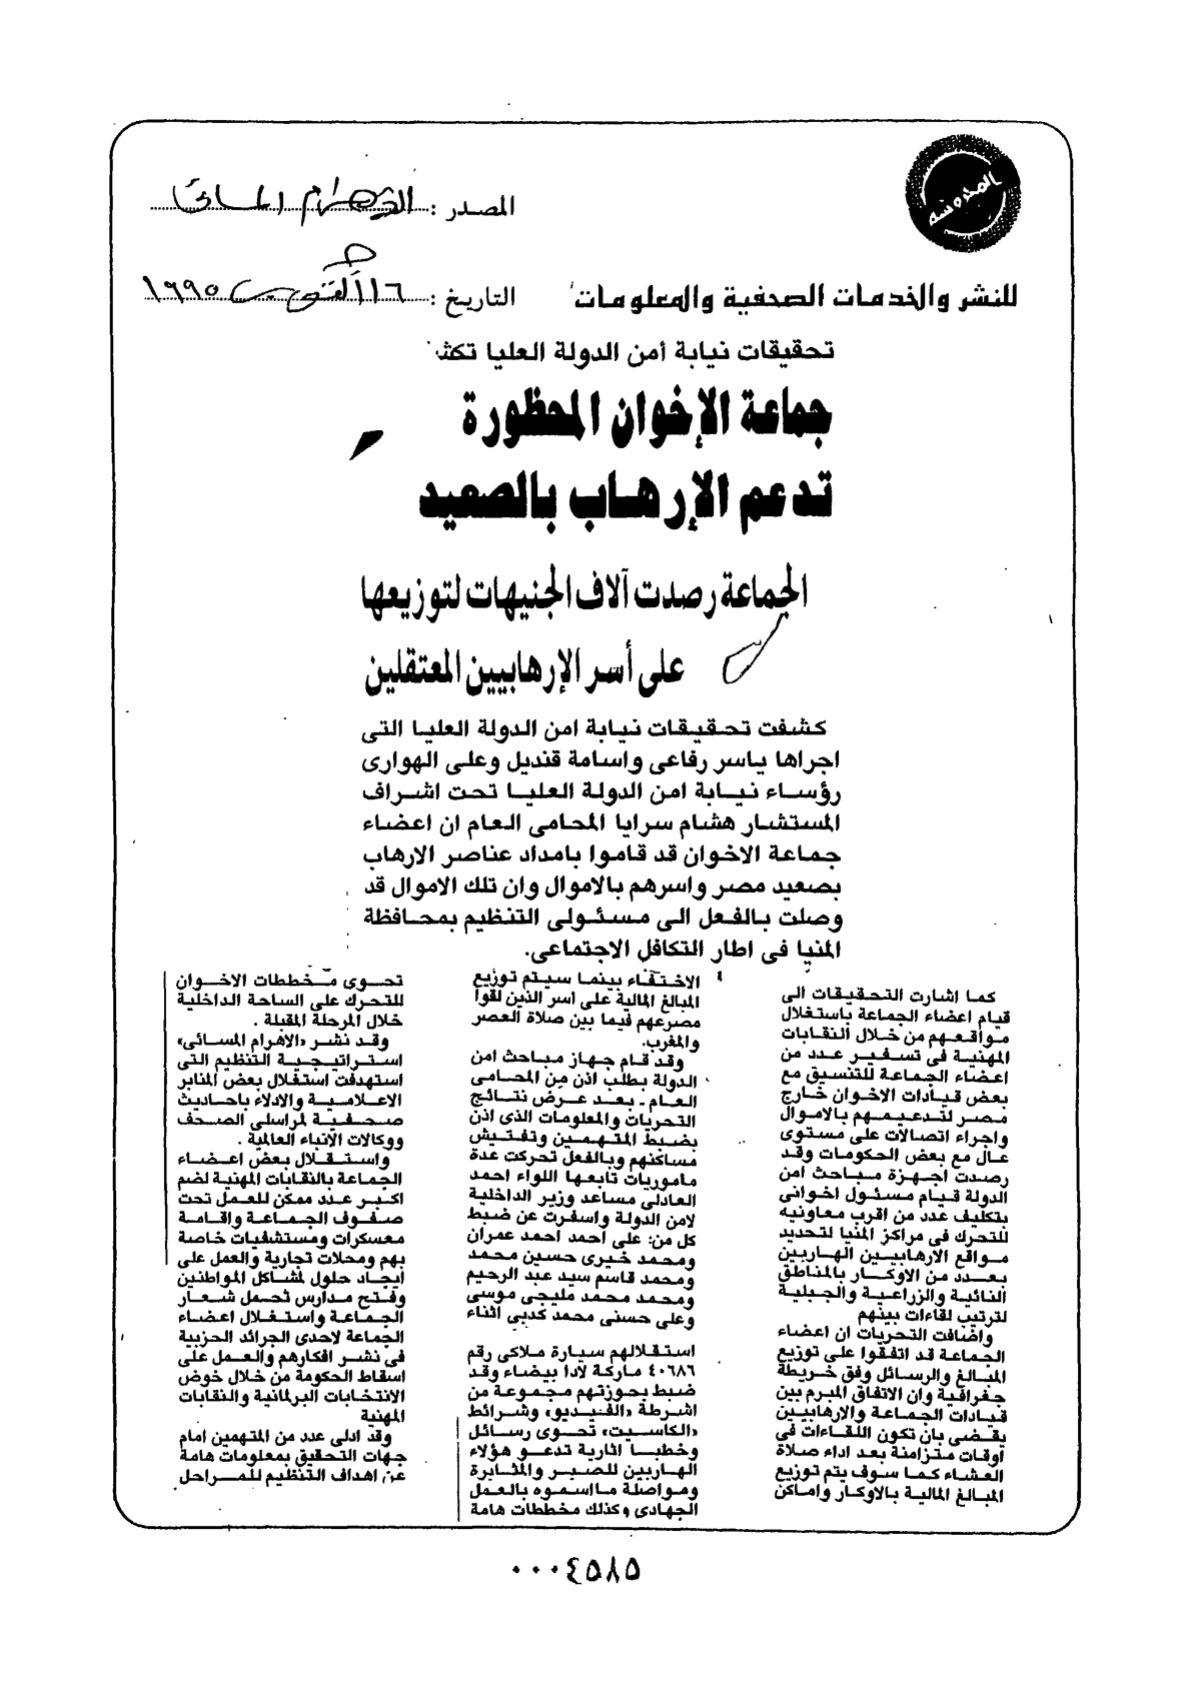 المحروسة
المصدر : الأهرام المسائى
التاريخ : ١٦ أكتوبر ١٩٩٥
للنشر والخدمات الصحفية والمعلومات
تحقيقات نيابة أمن الدولة العليا تكشف
جماعة الإخوان المحظورة
تدعم الإرهاب بالصعيد
الجماعة رصدت آلاف الجنيهات لتوزيعها
على أسر الإرهابيين المعتقلين
كشفت تحقيقات نيابة امن الدولة العليا التى
اجراها ياسر رفاعى واسامة قنديل وعلى الهوارى
رؤساء نيابة امن الدولة العليا تحت اشراف
المستشار هشام سرايا المحامى العام ان اعضاء
جماعة الاخوان قد قاموا بامداد عناصر الارهاب
بصعيد مصر واسرهم بالاموال وان تلك الاموال قد
وصلت بالفعل الى مسئولى التنظيم بمحافظة
المنيا فى اطار التكافل الاجتماعى.
كما اشارت التحقيقات الى
قيام اعضاء الجماعة باستغلال
مواقعهم من خلال النقابات
المهنية فى تسفير عدد من
اعضاء الجماعة للتنسيق مع
بعض قيادات الاخوان خارج
مصر لتدعيمهم بالاموال
واجراء اتصالات على مستوى
عال مع بعض الحكومات وقد
رصدت اجهزة مباحث امن
الدولة قيام مسئول اخوانى
بتكليف عدد من اقرب معاونيه
للتحرك فى مراكز المنيا لتحديد
مواقع الارهابيين الهاربين
بعدد من الاوكار بالمناطق
النائية والزراعية والجبلية
لترتيب لقاءات بينهم
واضافت التحريات ان اعضاء
الجماعة قد اتفقوا على توزيع
المبالغ والرسائل وفق خريطة
جغرافية وان الاتفاق المبرم بين
قيادات الجماعة والارهابيين
يقضى بان تكون اللقاءات فى
اوقات متزامنة بعد اداء صلاة
العشاء كما سوف يتم توزيع
المبالغ المالية بالاوكار واماكن
الاختفاء بينما سيتم توزيع
المبالغ المالية على اسر الذين لقوا
مصرعهم فيما بين صلاة العصر
والمغرب.
وقد قام جهاز مباحث امن
الدولة بطلب اذن من المحامى
العام ـ بعد عرض نتائج
التحريات والمعلومات الذى اذن
بضبط المتهمين وتفتيش
مساكنهم وبالفعل تحركت عدة
ماموريات تابعها اللواء احمد
العادلى مساعد وزير الداخلية
لامن الدولة واسفرت عن ضبط
كل من: على احمد احمد عمران
ومحمد خيرى حسين محمد
ومحمد قاسم سيد عبد الرحيم
ومحمد محمد مليجى موسى
وعلى حسنى محمد كدبى اثناء
استقلالهم سيارة ملاكى رقم
٤٠٦٨٦ ماركة لادا بيضاء وقد
ضبط بحوزتهم مجموعة من
اشرطة «الفيديو» وشرائط
«الكاسيت» تحوى رسائل
وخطبا اثارية تدعو هؤلاء
الهاربين للصبر والمثابرة
ومواصلة ما اسموه بالعمل
الجهادى وكذلك مخططات هامة
تحوى مخططات الاخوان
للتحرك على الساحة الداخلية
خلال المرحلة المقبلة .
وقد نشر «الاهرام المسائى»
استراتيجية التنظيم التى
استهدفت استغلال بعض المنابر
الاعلامية والادلاء باحاديث
صحفية لمراسلى الصحف
ووكالات الانباء العالمية .
واستغلال بعض اعضاء
الجماعة بالنقابات المهنية لضم
اكبر عدد ممكن للعمل تحت
صفوف الجماعة واقامة
معسكرات ومستشفيات خاصة
بهم ومحلات تجارية والعمل على
ايجاد حلول لمشاكل المواطنين
وفتح مدارس تحمل شعار
الجماعة واستغلال اعضاء
الجماعة لاحدى الجرائد الحزبية
فى نشر افكارهم والعمل على
اسقاط الحكومة من خلال خوض
الانتخابات البرلمانية والنقابات
المهنية
وقد ادلى عدد من المتهمين امام
جهات التحقيق بمعلومات هامة
عن اهداف التنظيم للمراحل
٠٠٠٤٥٨٥